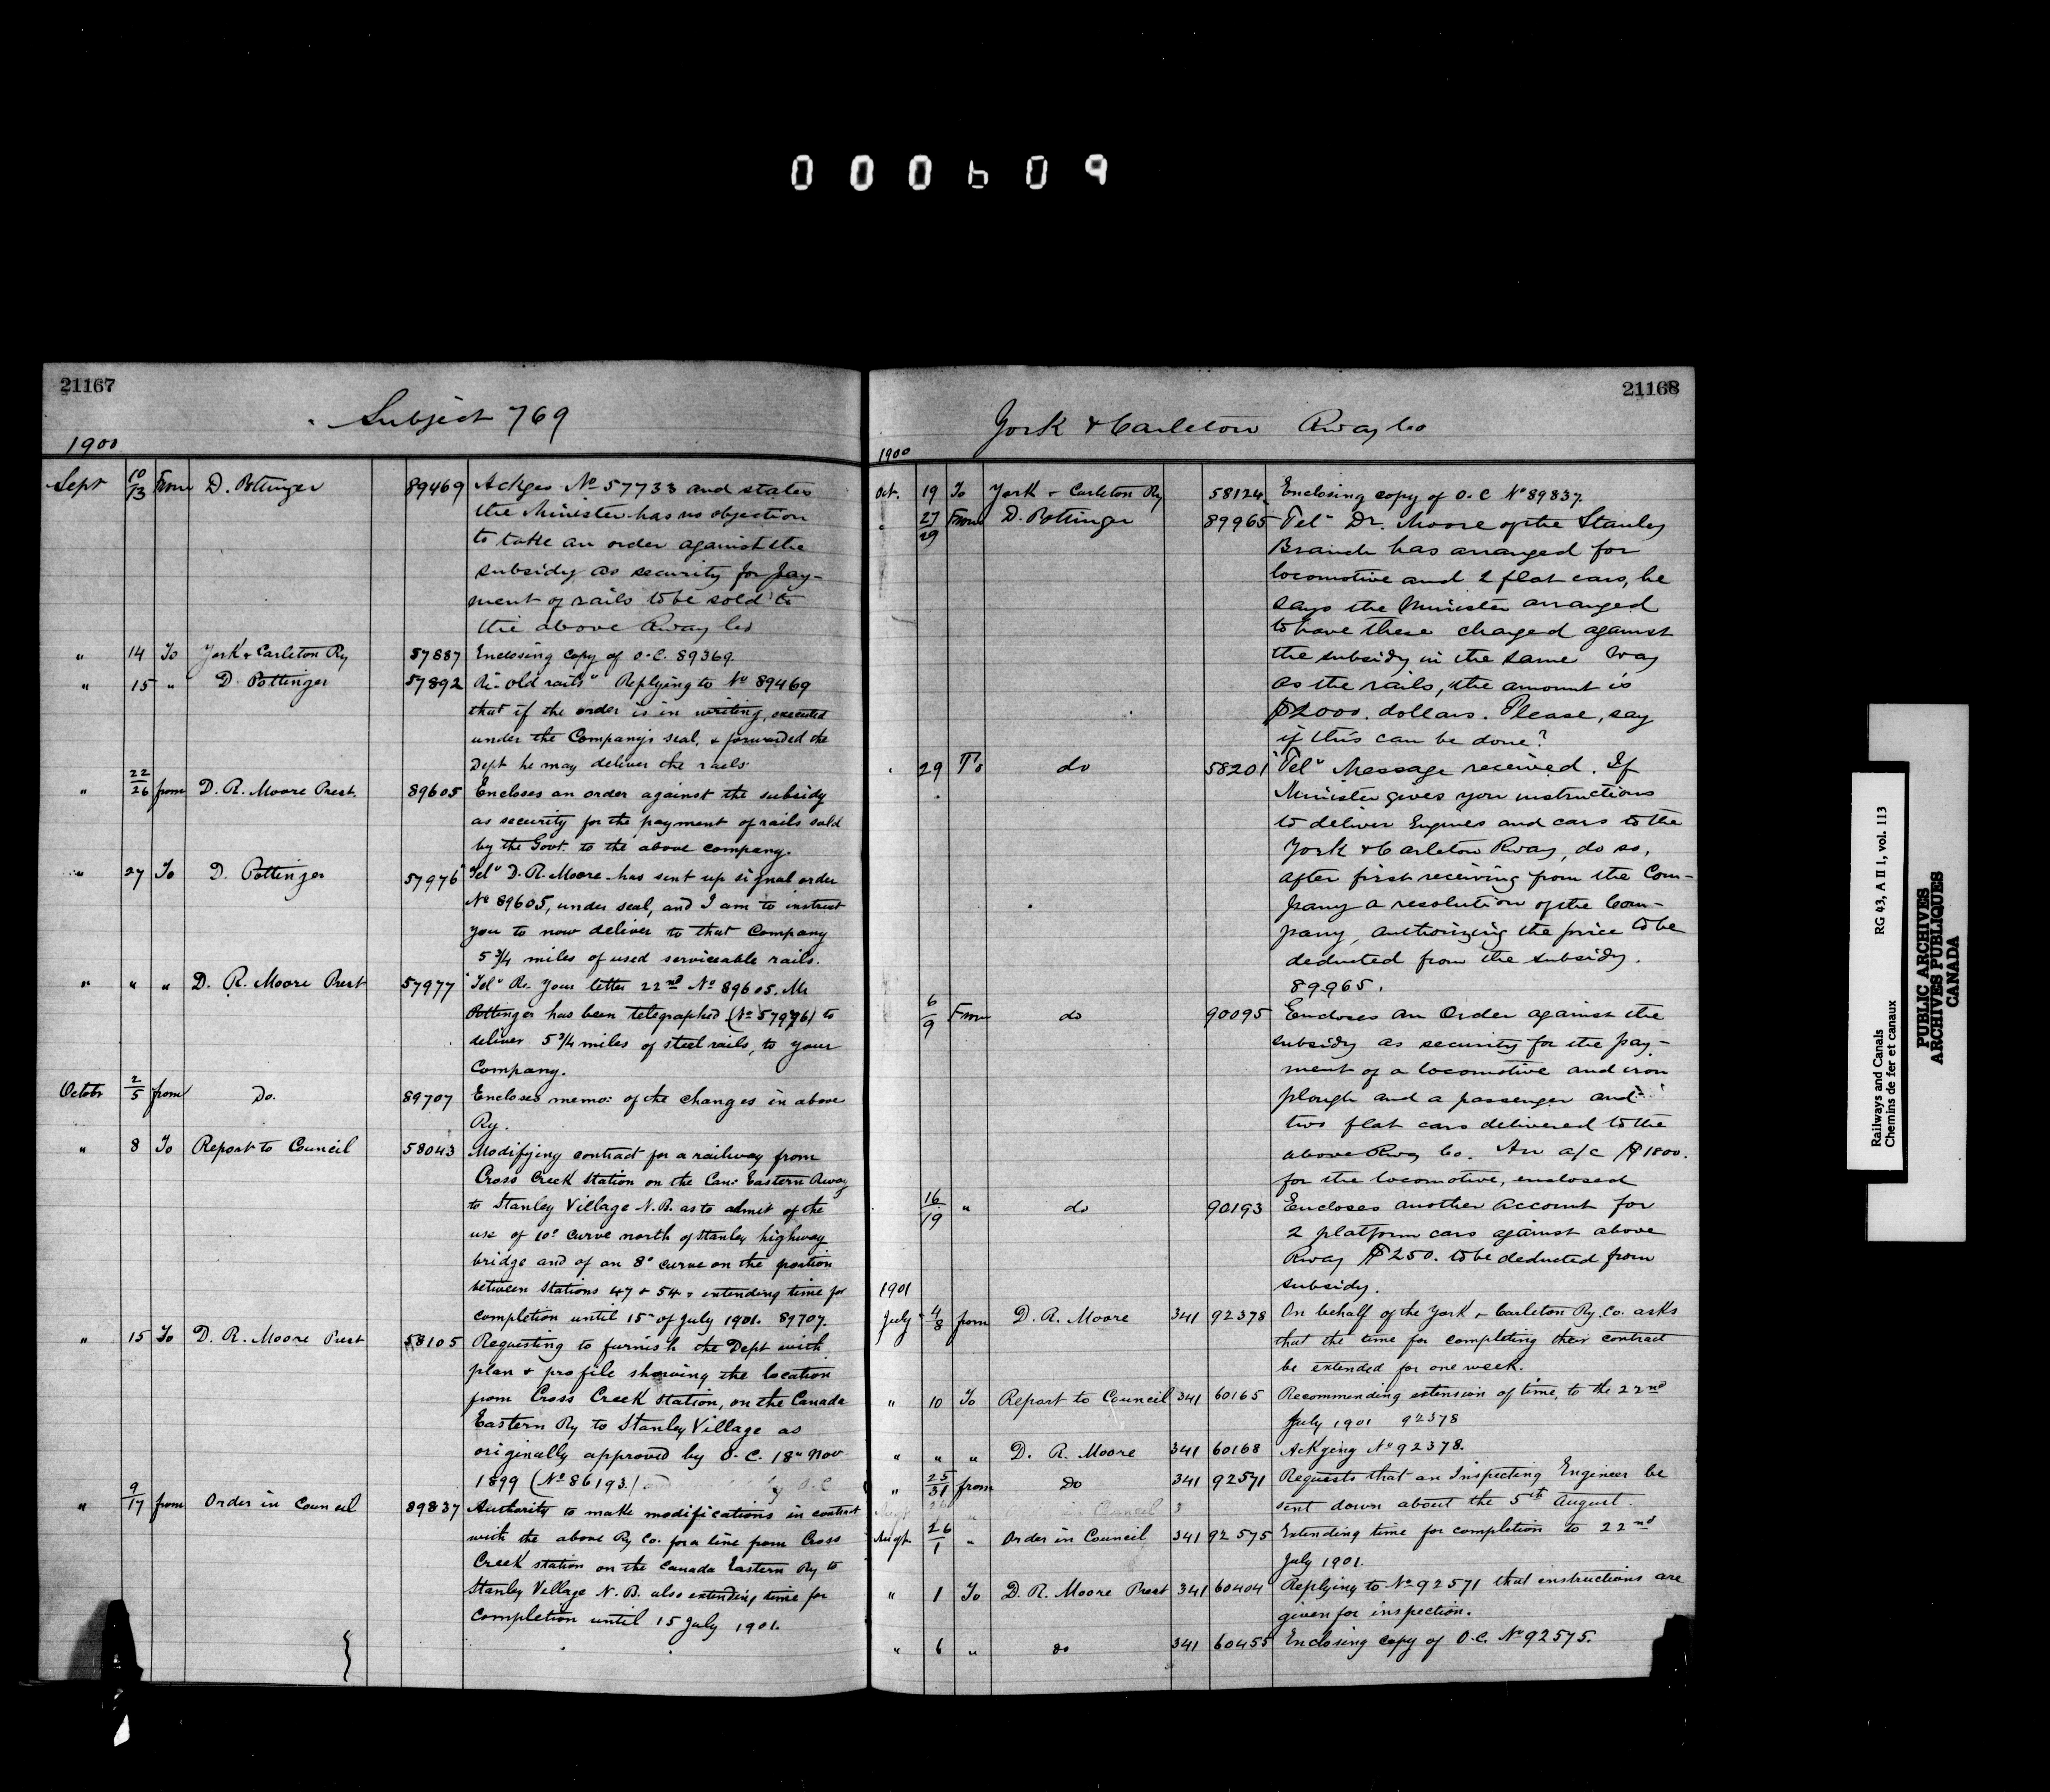 000609
21167
Subject 769
1900
Sept 10/13 From D. Pottinger 89469 Ackges No 57733 and states
the Minister has no objection
to take an order against the
subsidy as security for pay-
ment of rails to be sold to
the above Rway Co
" 14 To York & Carleton Ry 57887 Enclosing copy of O.C. 89369.
" 15 " D. Pottinger 57892 Re "old rails" Replying to No 89469
that if the order is in writing, executed
under the Company's seal, & forwarded the
Dept he may deliver the rails.
" 22/26 from D. R. Moore Prest. 89605 Encloses an order against the subsidy
as security for the payment of rails sold
by the Govt. to the above company.
" 27 To D. Pottinger 57976 "Tel" D. R. Moore has sent up signal order
No 89605, under seal, and I am to instruct
you to now deliver to that Company
5 3/4 miles of used serviceable rails.
" " " D. R. Moore Prest 57977 "Tel" Re. Your letter 22nd No 89605. Mr
Pottinger has been telegraphed (No 57976) to
deliver 5 3/4 miles of steel rails, to your
Company.
Octobr 2/5 from Do. 89707 Encloses memo: of the changes in above
Ry.
" 8 To Report to Council 58043 Modifying contract for a railway from
Cross Creek Station on the Can: Eastern Rway
to Stanley Village N.B. as to admit of the
use of 10° curve north of Stanley highway
bridge and of an 8° curve on the portion
between Stations 47 & 54 & extending time for
completion until 15th of July 1901. 89707.
" 15 To D. R. Moore Prest 58105 Requesting to furnish the Dept with
plan & profile showing the location
from Cross Creek Station, on the Canada
Eastern Ry to Stanley Village as
originally approved by O.C. 18th Nov
1899 (No 86193.) and by O.C
" 9/17 from Order in Council 89837 Authority to make modifications in contract
with the above Ry Co. for a line from Cross
Creek station on the Canada Eastern Ry to
Stanley Village N.B. also extending time for
completion until 15 July 1901.
21168
York & Carleton Rway Co
1900
Oct. 19 To York & Carleton Ry 58124 Enclosing copy of O.C No 89837.
" 27/29 From D. Pottinger 89965 "Tel" Dr. Moore of the Stanley
Branch has arranged for
locomotive and 2 flat cars, he
says the Minister arranged
to have these charged against
the subsidy in the same way
as the rails, the amount is
$2000. dollars. Please, say
if this can be done?
" 29 To do 58201 "Tel" Message received. If
Minister gives you instructions
to deliver Engines and cars to the
York & Carleton Rway, do so,
after first receiving from the Com-
pany a resolution of the Com-
pany, authorizing the price to be
deducted from the subsidy.
89965.
6/9 From do 90095 Encloses an Order against the
subsidy as security for the pay-
ment of a locomotive and iron
plough and a passenger and
two flat cars delivered to the
above Rway Co. An a/c $1800.
for the locomotive, enclosed
16/19 " do 90193 Encloses another account for
2 platform cars against above
Rway $250. to be deducted from
subsidy.
1901
July 4/8 from D. R. Moore 341 92378 On behalf of the York & Carleton Ry. Co. asks
that the time for completing their contract
be extended for one week.
" 10 To Report to Council 341 60165 Recommending extension of time, to the 22nd
July 1901 92378
" " " D. R. Moore 341 60168 Ackging No 92378.
" 25/31 from Do 341 92571 Requests that an Inspecting Engineer be
sent down about the 5th August.
Augt 26/1 " Order in Council 341 92575 Extending time for completion to 22nd
July 1901.
" 1 To D. R. Moore Prest 341 60404 Replying to No 92571 that instructions are
given for inspection.
" 6 " do 341 60455 Enclosing copy of O.C. No 92575.
Railways and Canals RG 43, A II 1, vol. 113
Chemins de fer et canaux
PUBLIC ARCHIVES
ARCHIVES PUBLIQUES
CANADA